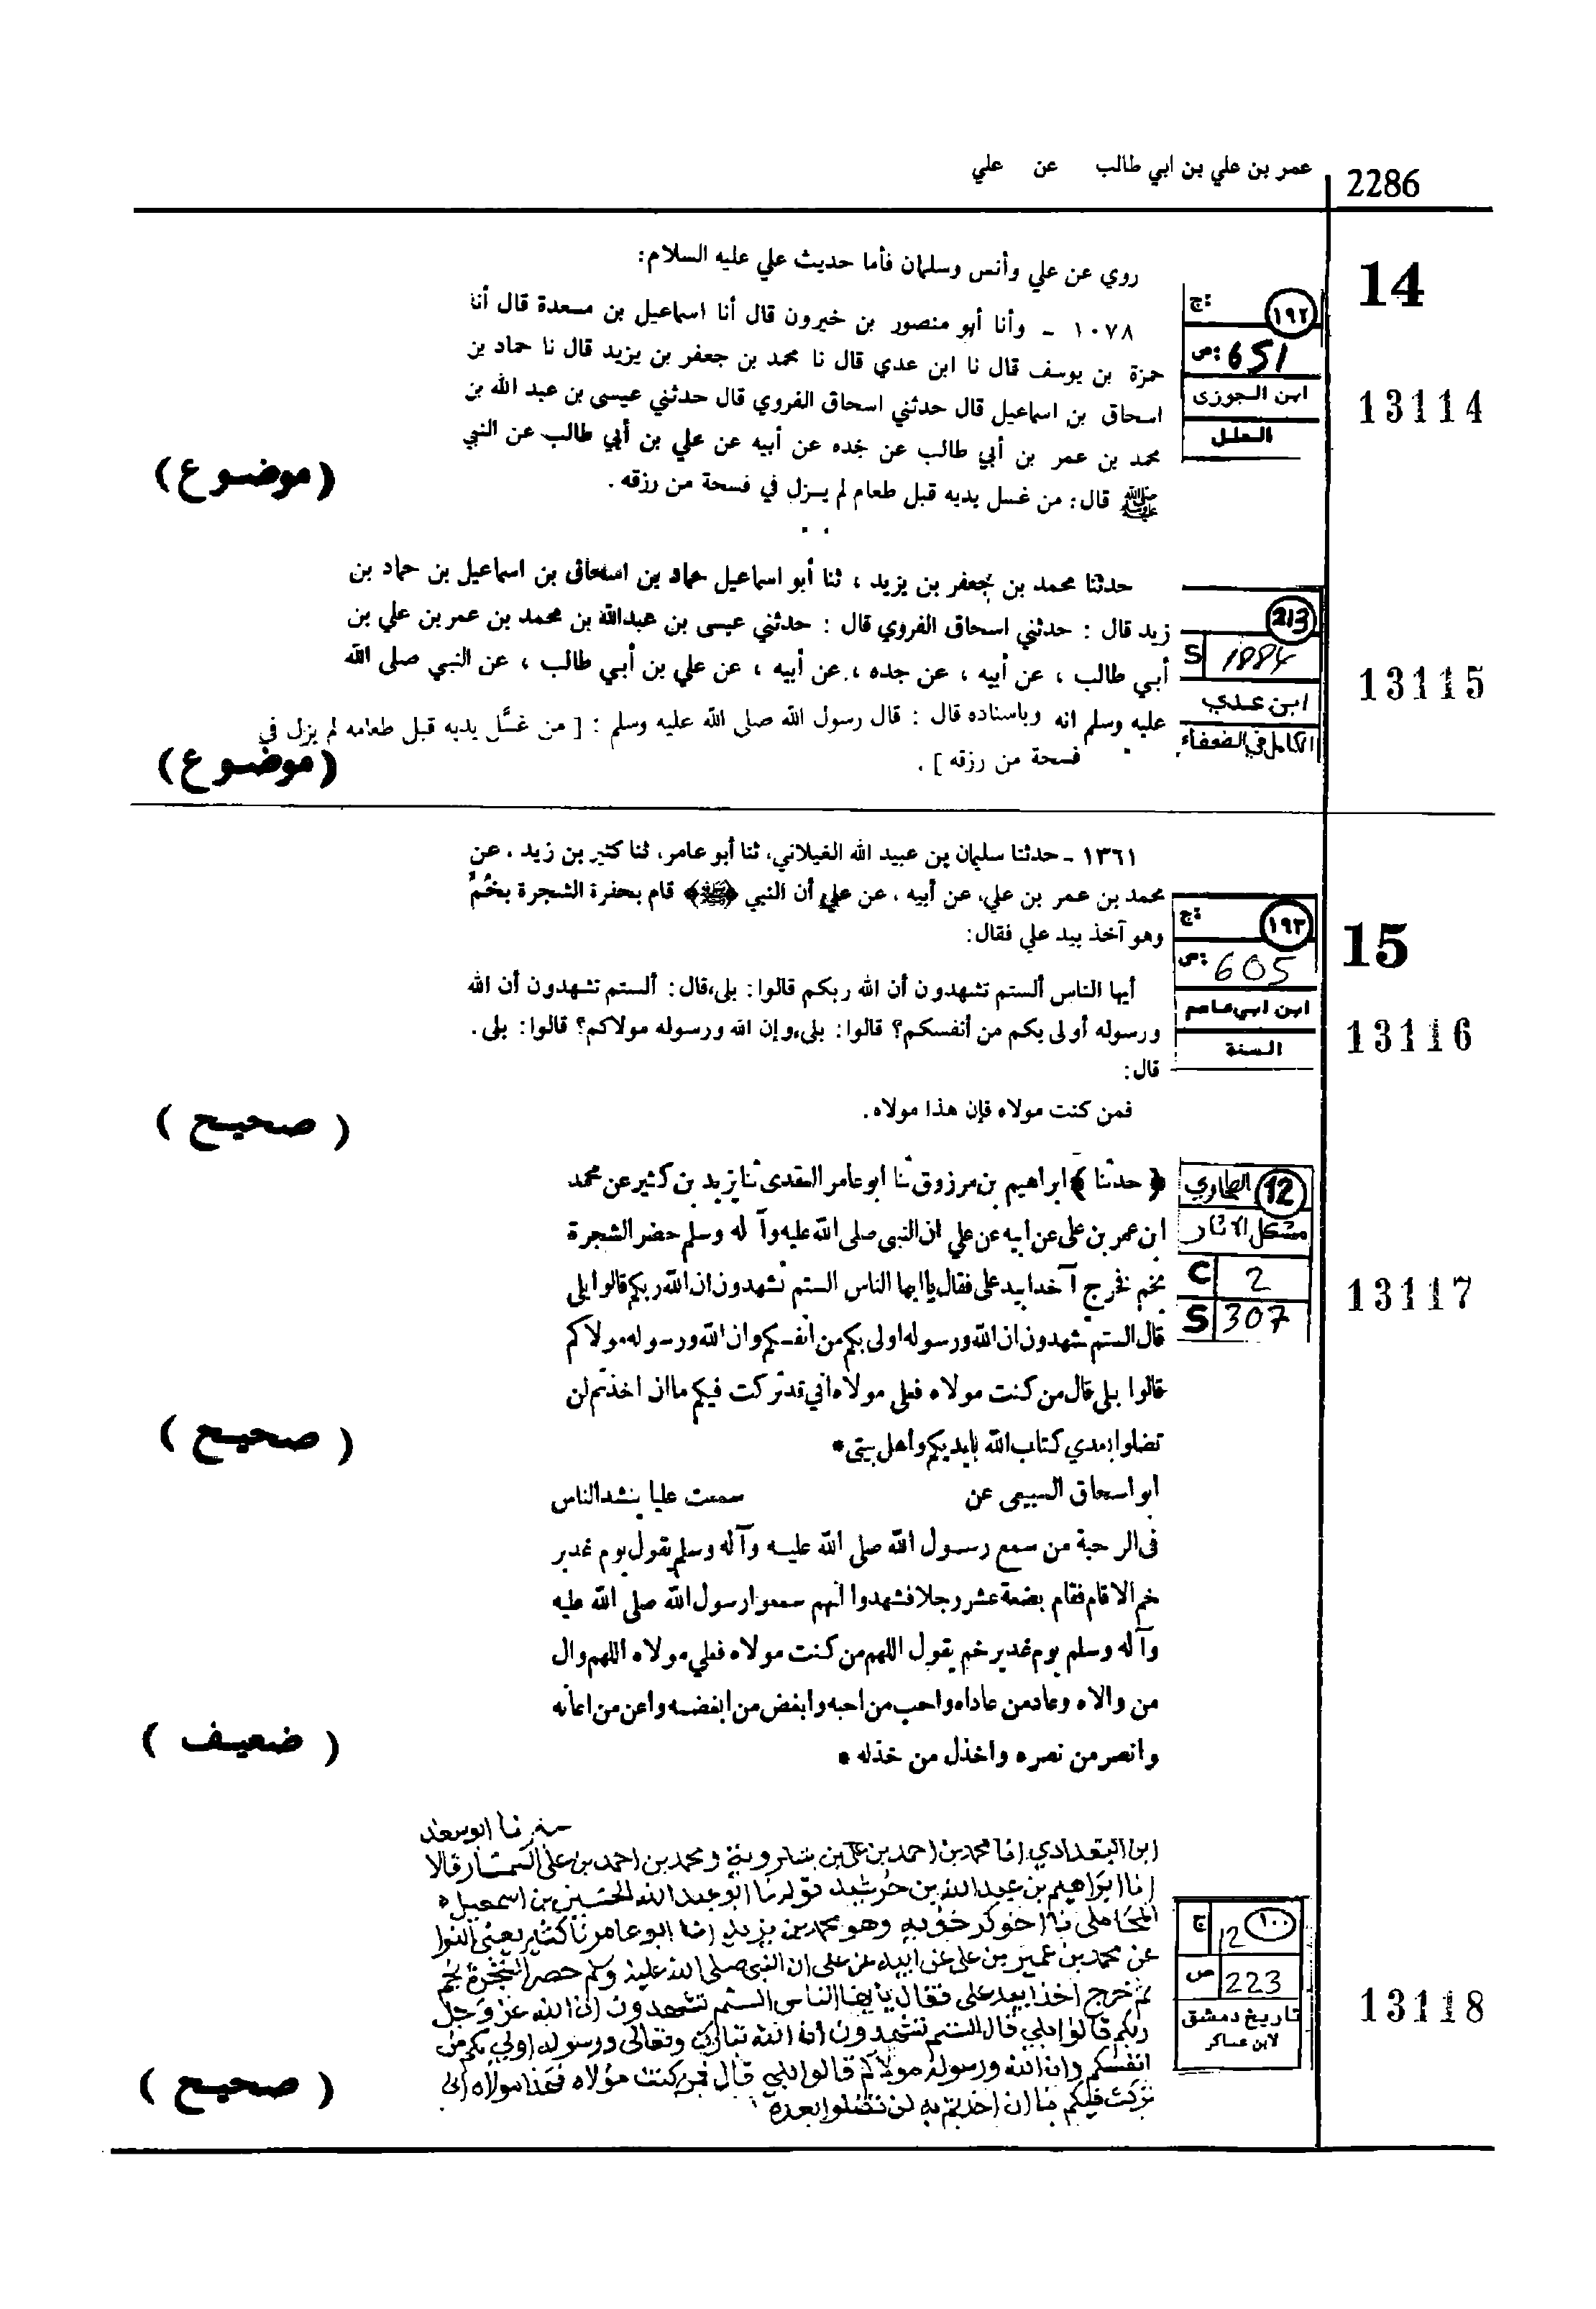 2286
عمر بن علي بن ابي طالب عن علي
14
روي عن علي وأنس وسلمان فأما حديث علي عليه السلام:
ج:
١٩٢
ص: 651
ابن الجوزى
العلل
13114
١٠٧٨ - وأنا أبو منصور بن خيرون قال أنا اسماعيل بن مسعدة قال أنا
حمزة بن يوسف قال نا ابن عدي قال نا محمد بن جعفر بن يزيد قال نا حماد بن
اسحاق بن اسماعيل قال حدثني اسحاق الفروي قال حدثني عيسى بن عبد الله بن
محمد بن عمر بن أبي طالب عن جده عن أبيه عن علي بن أبي طالب عن النبي
ﷺ قال: من غسل يديه قبل طعام لم يزل في فسحة من رزقه.
(موضوع)
213
S 1884
ابن عدي
الكامل في الضعفاء
13115
حدثنا محمد بن جعفر بن يزيد ، ثنا أبو اسماعيل حماد بن اسحاق بن اسماعيل بن حماد بن
زيد قال : حدثني اسحاق الفروي قال : حدثني عيسى بن عبدالله بن محمد بن عمر بن علي بن
أبي طالب ، عن أبيه ، عن جده ، عن أبيه ، عن علي بن أبي طالب ، عن النبي صلى الله
عليه وسلم انه وباسناده قال : قال رسول الله صلى الله عليه وسلم : [ من غسَّل يديه قبل طعامه لم يزل في
فسحة من رزقه ] .
(موضوع)
15
ج:
١٩٣
ص: 605
ابن ابي عاصم
السنة
13116
١٣٦١ - حدثنا سليمان بن عبيد الله الغيلاني، ثنا أبو عامر، ثنا كثير بن زيد، عن
محمد بن عمر بن علي، عن أبيه، عن علي أن النبي ﴿ﷺ﴾ قام بحفرة الشجرة بخُمّ
وهو آخذ بيد علي فقال:
أيها الناس ألستم تشهدون أن الله ربكم قالوا: بلى، قال: ألستم تشهدون أن الله
ورسوله أولى بكم من أنفسكم؟ قالوا: بلى، وإن الله ورسوله مولاكم؟ قالوا: بلى.
قال:
فمن كنت مولاه فإن هذا مولاه.
( صحيح )
12
الطحاوي
مشكل الاثار
C 2
S 307
13117
﴿ حدثنا ﴾ ابراهيم بن مرزوق ثنا ابو عامر العقدى ثنا يزيد بن كثير عن محمد
ابن عمر بن على عن ابيه عن علي ان النبي صلى الله عليه وآ له وسلم حضر الشجرة
بخم فخرج آخذا بيد على فقال ياايها الناس الستم تشهدون ان الله ربكم قالوا بلى
قال الستم تشهدون ان الله ورسوله اولى بكم من انفسكم وان الله ورسوله مولاكم
قالوا بلى قال من كنت مولاه فعلى مولاه اني قد تركت فيكم ما ان اخذتم لن
تضلوا بعدي كتاب الله بايديكم واهل بيتى *
( صحيح )
ابو اسحاق السبيعي عن سمعت عليا ينشد الناس
فى الرحبة من سمع رسول الله صلى الله عليه وآله وسلم يقول يوم غدير
خم الا قام فقام بضعة عشر رجلا فشهدوا انهم سمعوا رسول الله صلى الله عليه
وآله وسلم يوم غدير خم يقول اللهم من كنت مولاه فعلي مولاه اللهم وال
من والاه وعاد من عاداه واحب من احبه وابغض من ابغضه واعن من اعانه
وانصر من نصره واخذل من خذله *
( ضعيف )
١٠٠
ج 12
ص 223
تاريخ دمشق
لابن عساكر
13118
ابو سعد
ابن البغدادي انا محمد بن احمد بن علي بن شكرويه ومحمد بن احمد بن على السمسار قالا
انا ابراهيم بن عبد الله بن خرشيد قوله نا ابو عبد الله الحسين بن اسمعيل
المحاملى نا اخو كرخويه وهو محمد بن يزيد انا ابو عامر نا كثير يعنى النوا
عن محمد بن عمر بن على عن ابيه عن على ان النبي صلى الله عليه وسلم حضر الشجرة بخم
ثم خرج اخذا بيد على فقال يا ايها الناس الستم تشهدون ان الله عز وجل
ربكم قالوا بلى قال الستم تشهدون ان الله تبارك وتعالى ورسوله اولى بكم من
انفسكم وان الله ورسوله مولاكم قالوا بلى قال فمن كنت مولاه فهذا مولاه اني
تركت فيكم ما ان اخذتم به لن تضلوا بعده
( صحيح )